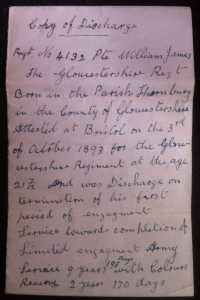 Copy of Discharge
Regt. No 4132 Pte William James
The Gloucestershire Regt
Born in the Parish Thornbury
in the County of Gloucestershire
Attested at Bristol on the 3rd
of October 1893 for the Glou-
cestershire Regiment at the age
21 7/12 and was Discharge on
termination of his first
period of engagment
Service towards completion of
Limited engagment Army
Service 9 years 195 days with Colours
Reserve 2 year 170 days